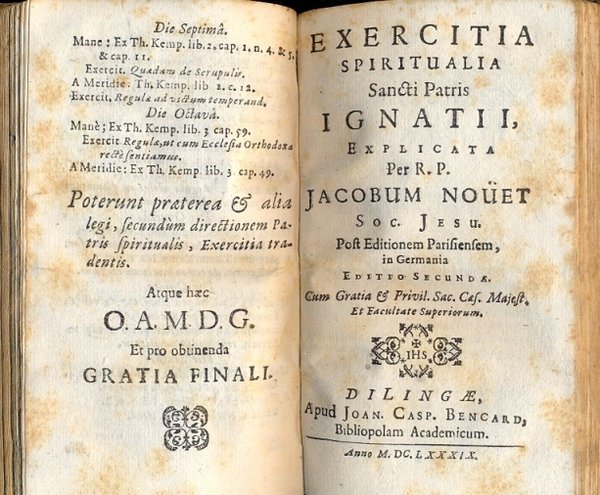 Die Septimâ.
Mane: Ex Th. Kemp. lib. 2, cap. 1. n. 4. & 5.
& cap. 11.
Exercit. Quædam de Scrupulis.
A Meridie: Th. Kemp. lib 2. c. 12.
Exercit. Regulæ ad victum temperand.
Die Octavâ.
Manè; Ex Th. Kemp. lib. 3 cap. 59.
Exercit Regula, ut cum Ecclesia Orthodoxa
rectè sentiamus.
A Meridie: Ex Th. Kemp. lib. 3. cap. 49.
Poterunt præterea & alia
legi, secundùm directionem Pa-
tris spiritualis, Exercitia tra-
dentis.
Atque hæc
O. A. M. D. G.
Et pro obtinenda
GRATIA FINALI.
EXERCITIA
SPIRITUALIA
Sancti Patris
IGNATII,
EXPLICATA
Per R. P.
JACOBUM NOÜET
SOC. JESU.
Post Editionem Parisiensem,
in Germania
EDITIO SECUNDA.
Cum Gratia & Privil. Sac. Cæs. Majest.
Et Facultate Superiorum.
IHS
DILINGÆ,
Apud JOAN. CASP. BENCARD,
Bibliopolam Academicum.
Anno M. DC. LXXXIX.